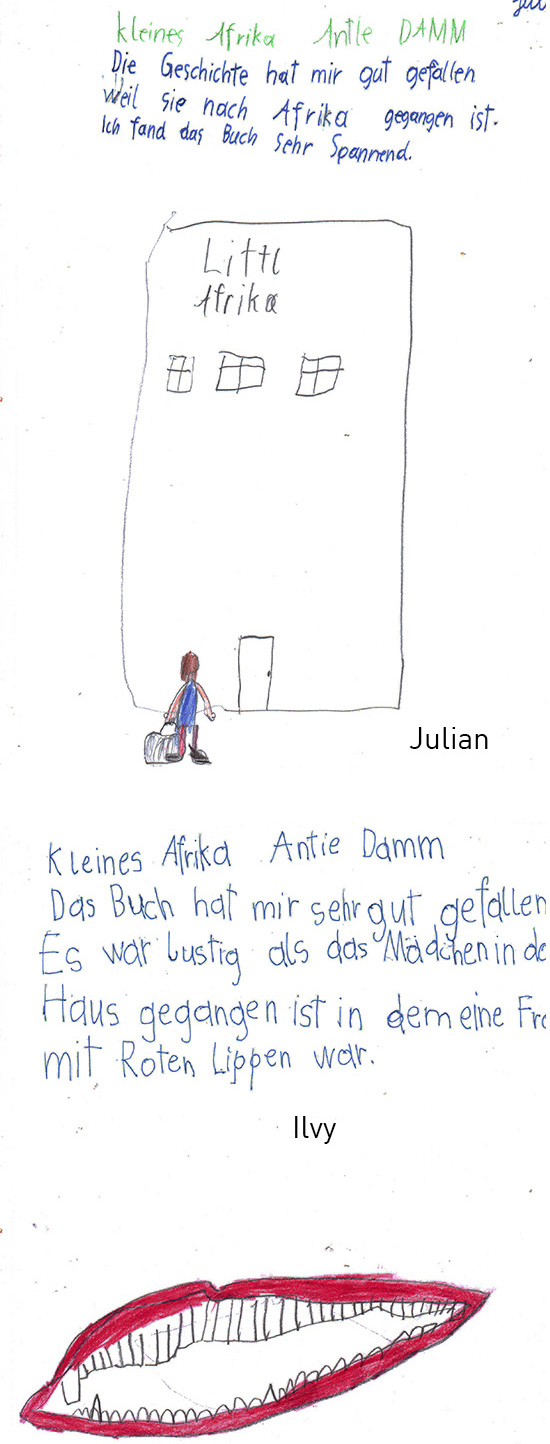 kleines Afrika Antle DAMM
Die Geschichte hat mir gut gefallen
weil sie nach Afrika gegangen ist.
Ich fand das Buch sehr Spannend.
Littl
Afrika
Julian
Kleines Afrika Antie Damm
Das Buch hat mir sehr gut gefallen
Es war lustig als das Mädchen in
Haus gegangen ist in dem eine
mit Roten Lippen war.
Ilvy